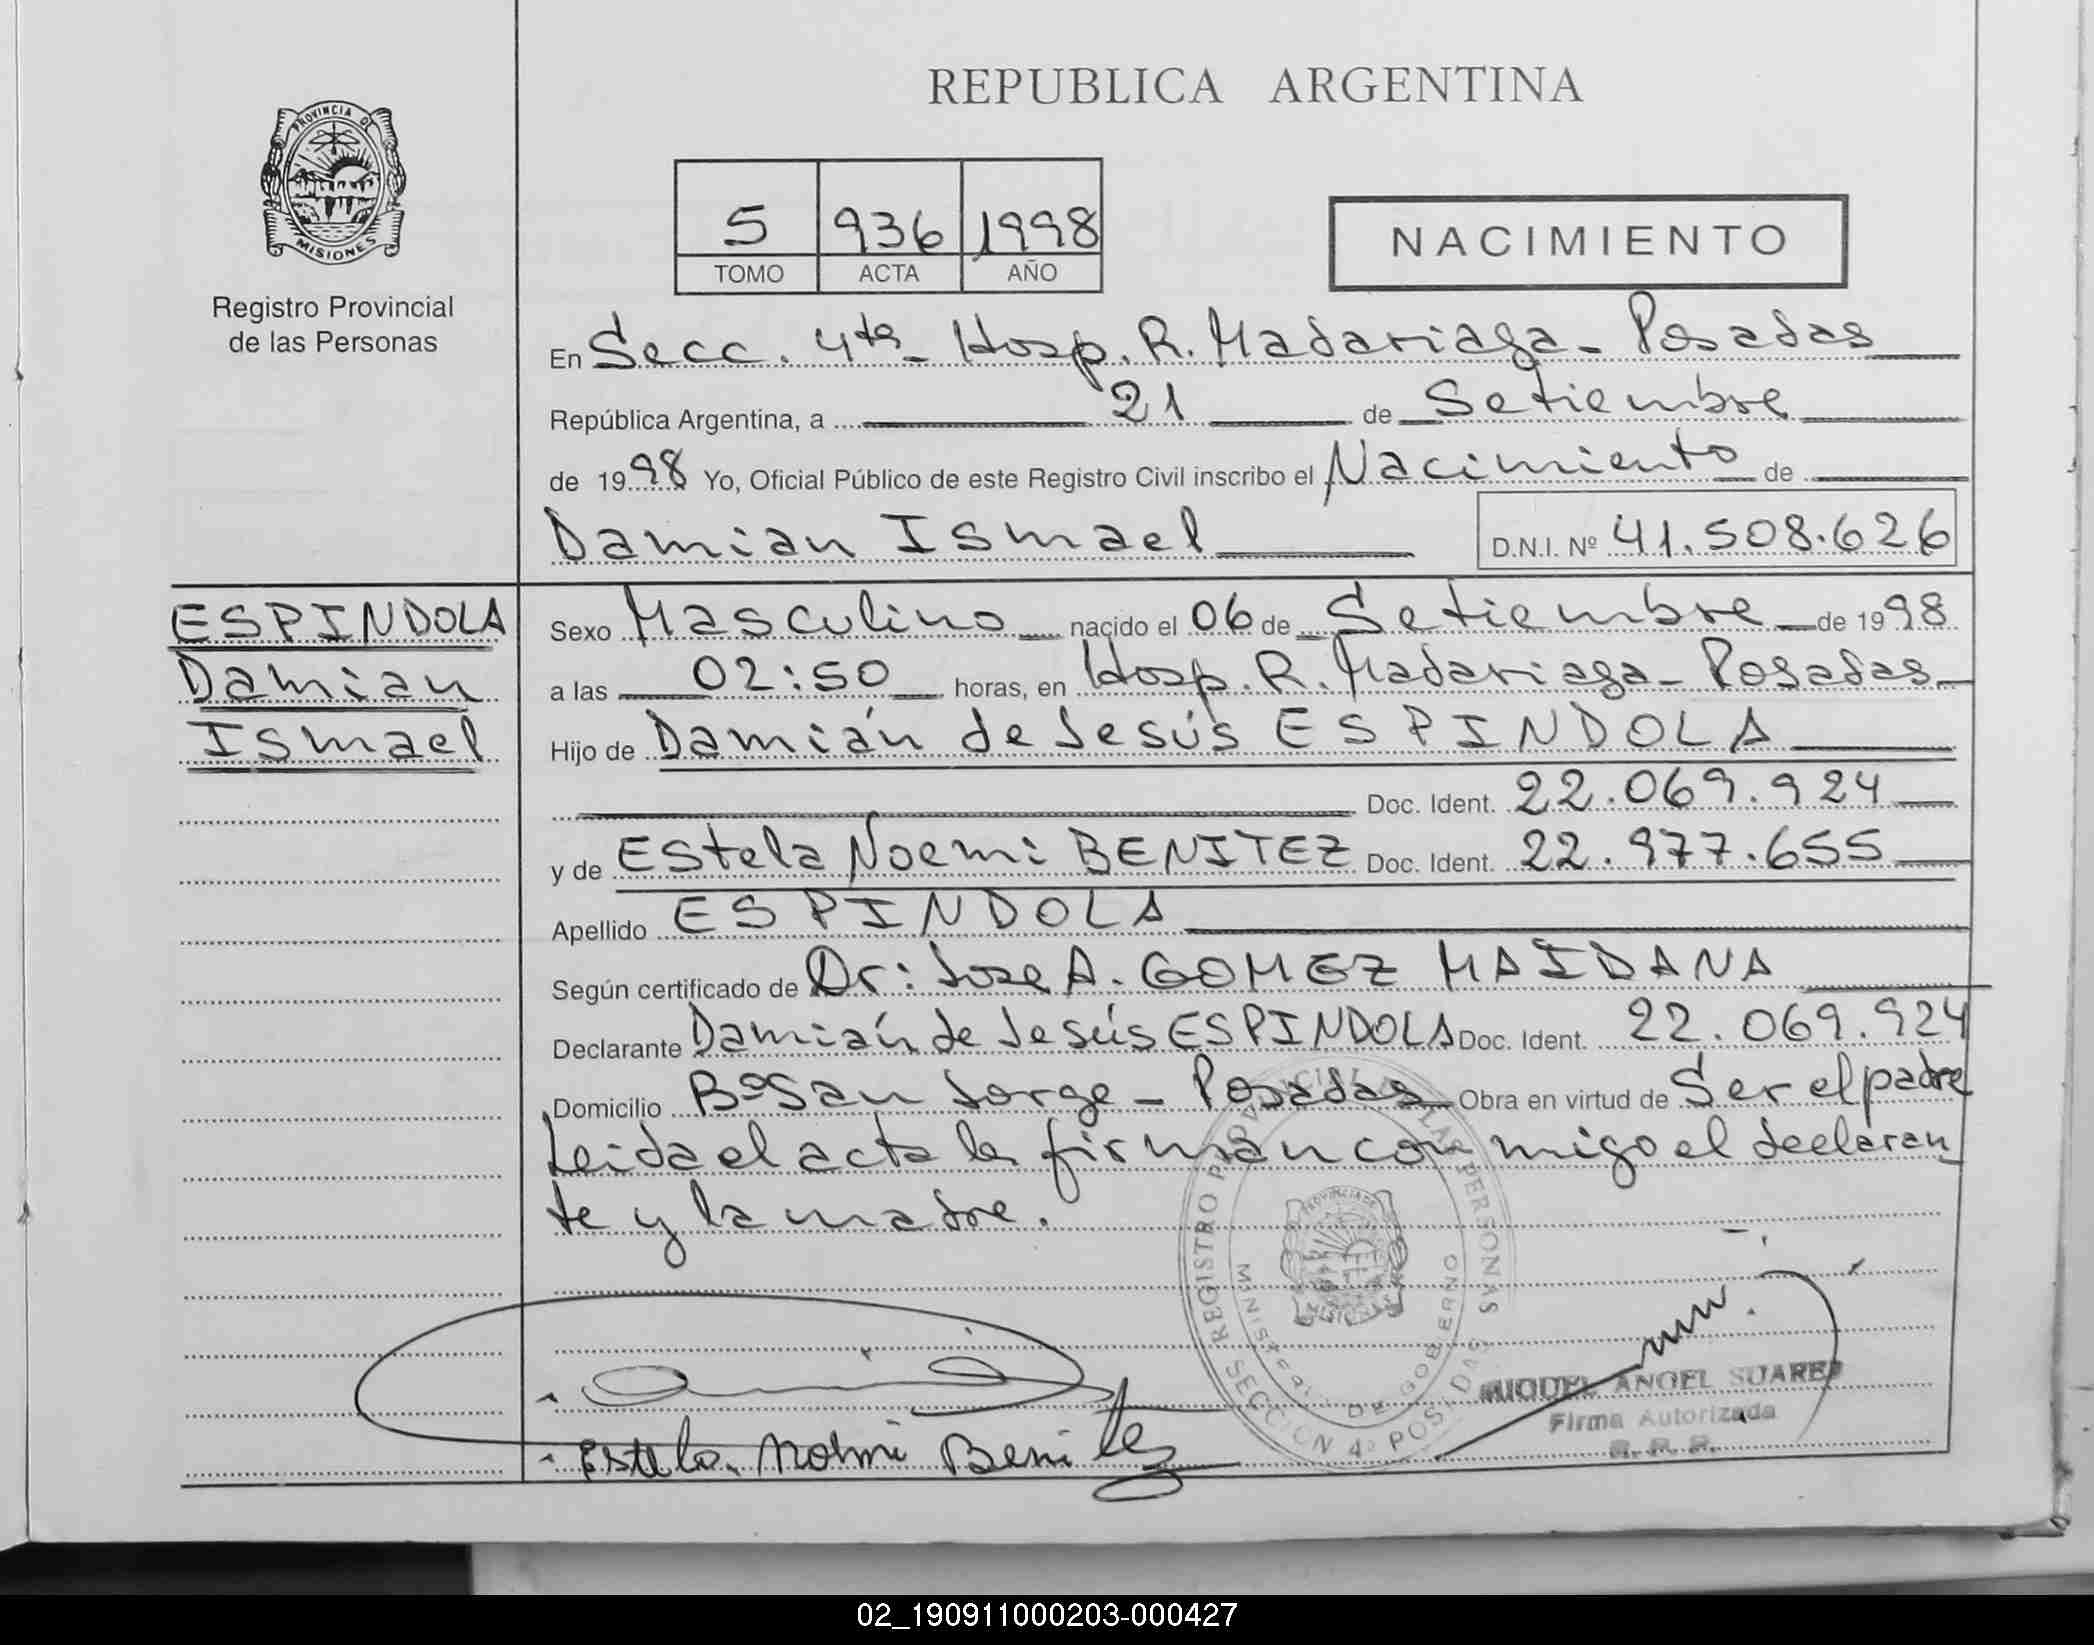 REPUBLICA ARGENTINA
PROVINCIA DE
MISIONES
Registro Provincial
de las Personas
5 936 1998
TOMO ACTA AÑO
NACIMIENTO
En Secc. 4ta - Hosp. R. Madariaga - Posadas
República Argentina, a 21 de Setiembre
de 1998 Yo, Oficial Público de este Registro Civil inscribo el Nacimiento de
Damian Ismael D.N.I. Nº 41.508.626
ESPINDOLA
Damian
Ismael
Sexo Masculino nacido el 06 de Setiembre de 1998
a las 02:50 horas, en Hosp. R. Madariaga - Posadas
Hijo de Damián de Jesús ESPINDOLA
Doc. Ident. 22.069.924
y de Estela Noemi BENITEZ Doc. Ident. 22.977.655
Apellido ESPINDOLA
Según certificado de Dr: Jose A. GOMEZ MAIDANA
Declarante Damián de Jesús ESPINDOLA Doc. Ident. 22.069.924
Domicilio Bº San Jorge - Posadas Obra en virtud de Ser el padre
Leida el acta la firman conmigo el declaran
te y la madre.
REGISTRO PROVINCIAL DE LAS PERSONAS
SECCION 4ª POSADAS
MINISTERIO DE GOBIERNO
PROVINCIA DE
MISIONES
MIGUEL ANGEL SUAREZ
Firma Autorizada
R.P.P.
Estela Nohmi Benitez
02_190911000203-000427